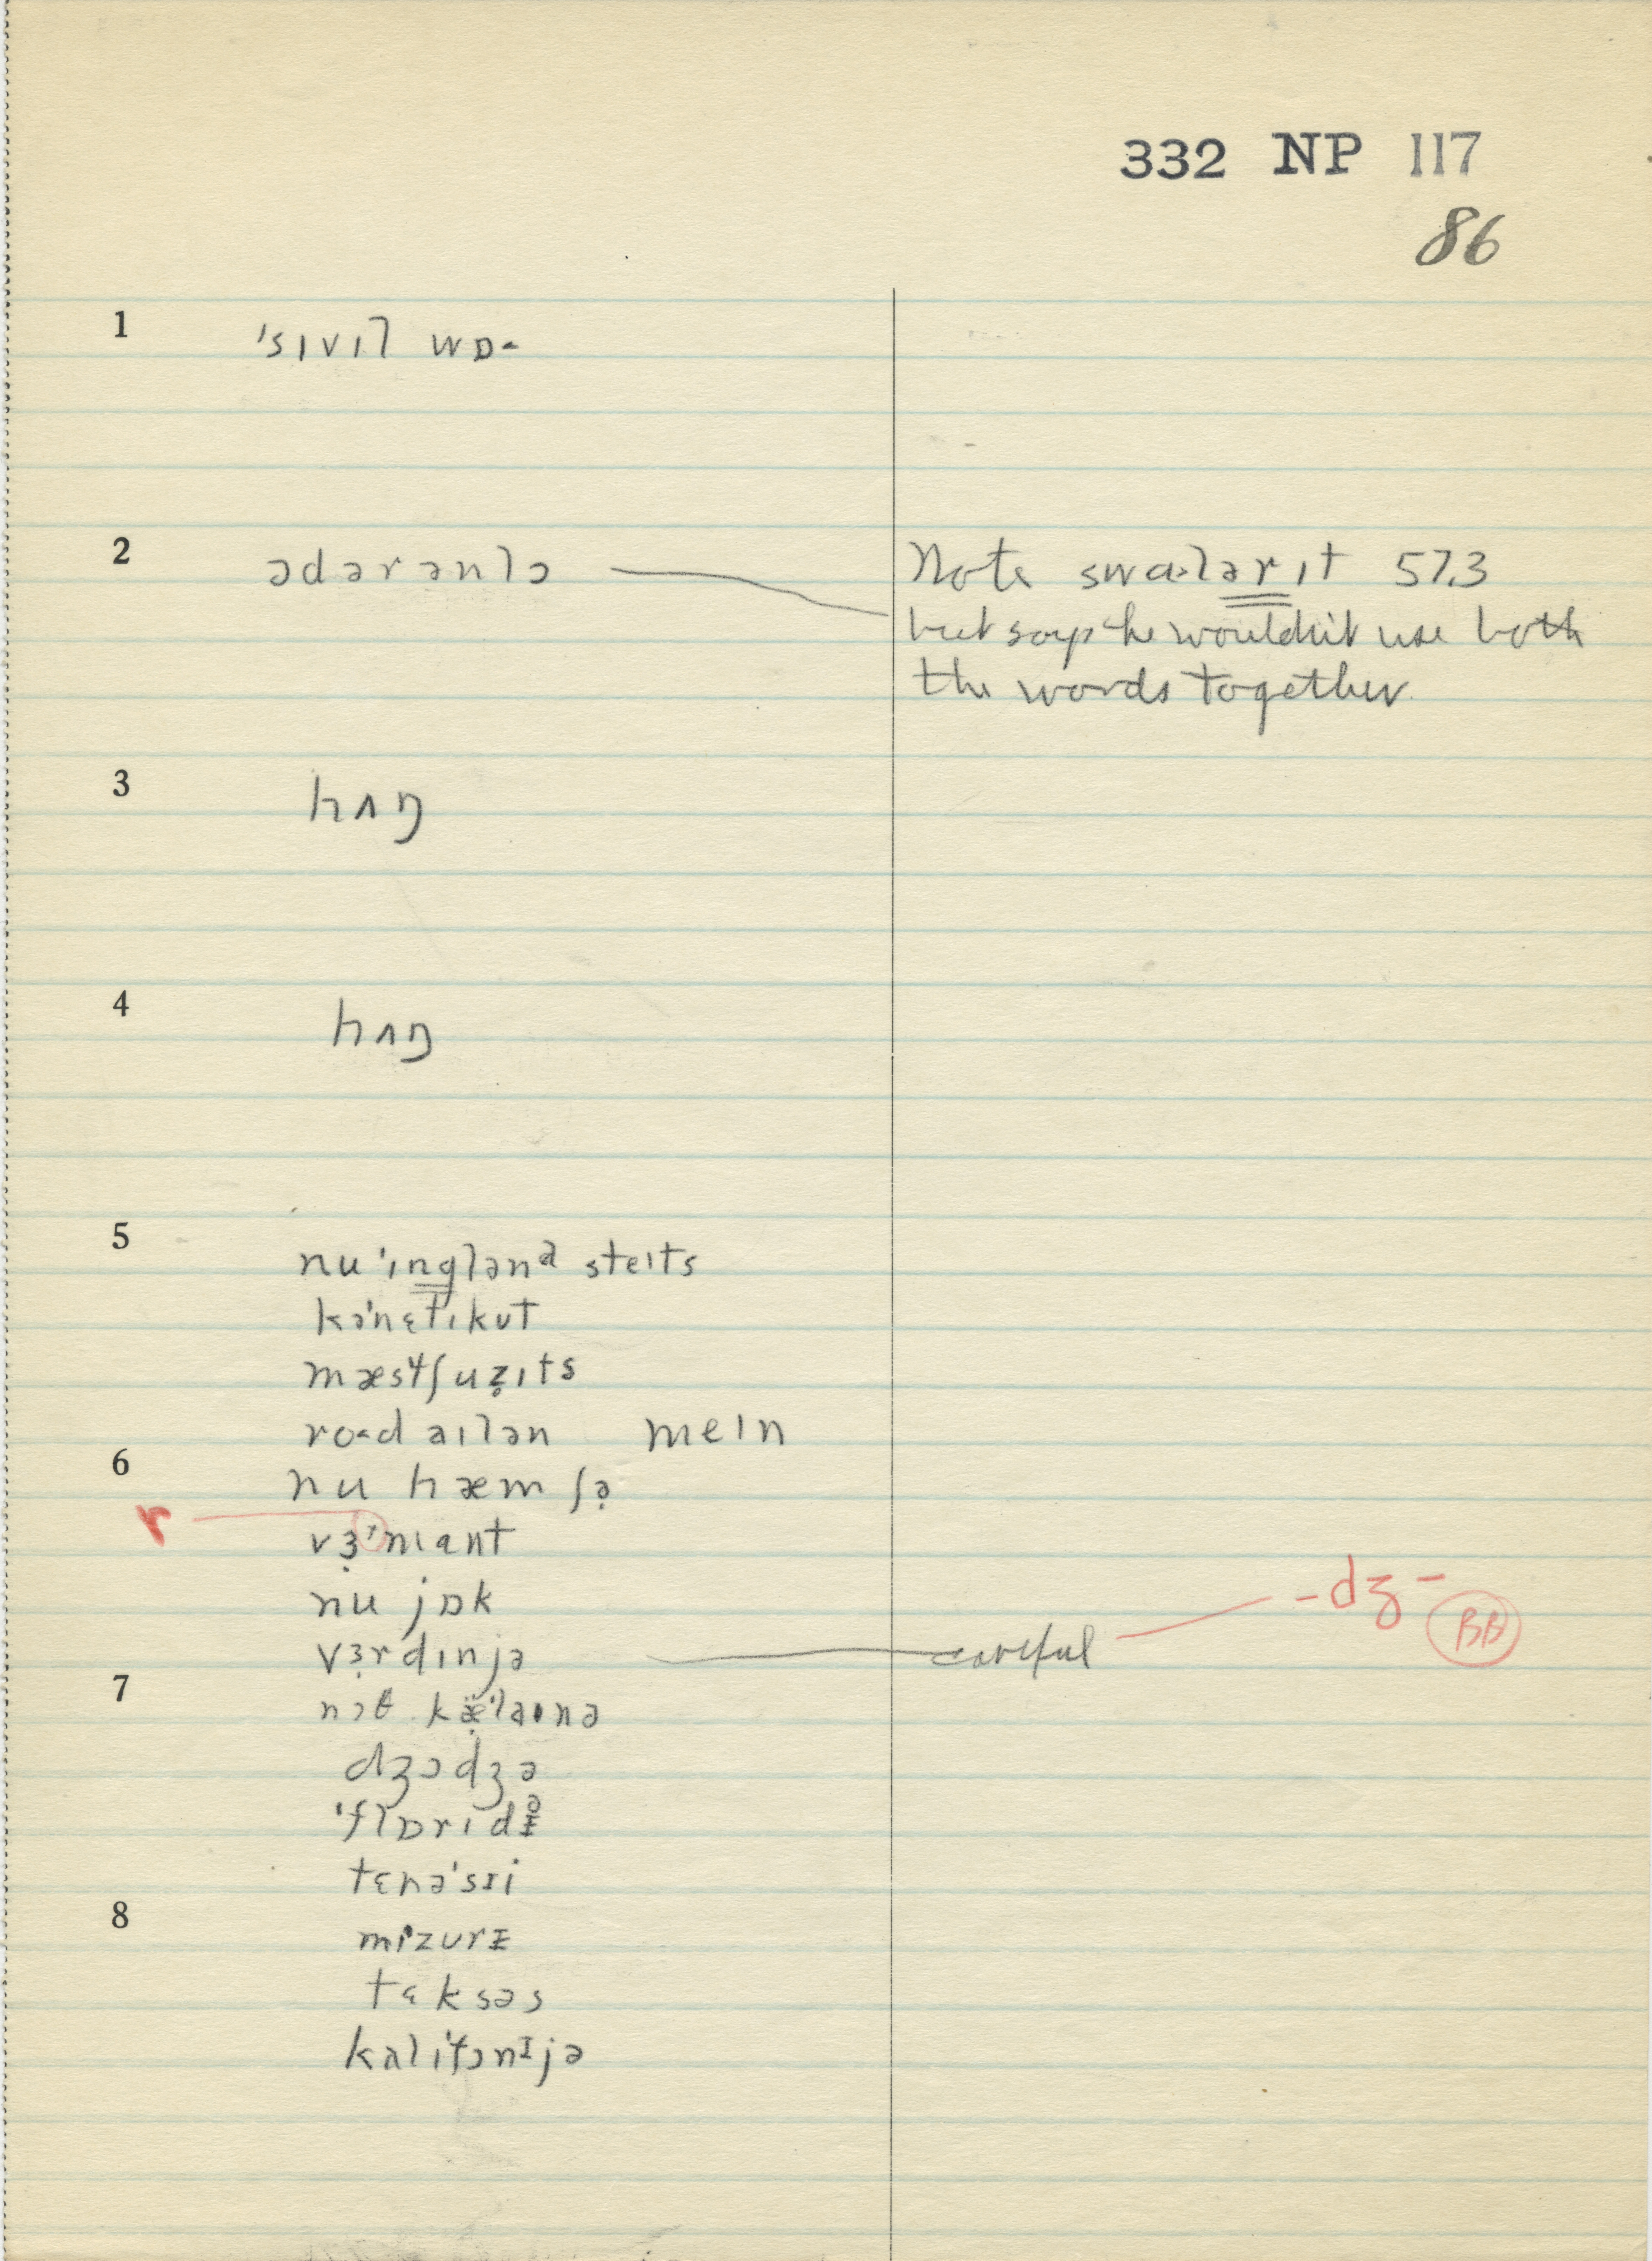 332 NP 117
86
1 ˈsɪvɪl wɒ-
2 ədərənlə Note swɑ·lərɪt 57.3
but says he wouldn't use both
the words together.
3 hʌŋ
4 hʌŋ
5 nuˈɪnglənd steɪts
kəˈnɛtɪkʊt
roˑd aɪlən meɪn
6 nu hæmʃə
r vɜˈmant
nu jɒk
-dʒ- BB
vɜrdɪnjə careful
7 nɔθ kæˈlaɪnə
dʒɔdʒə
tɛnəˈsɪi
8 mɪzurɪ
tɛksəs